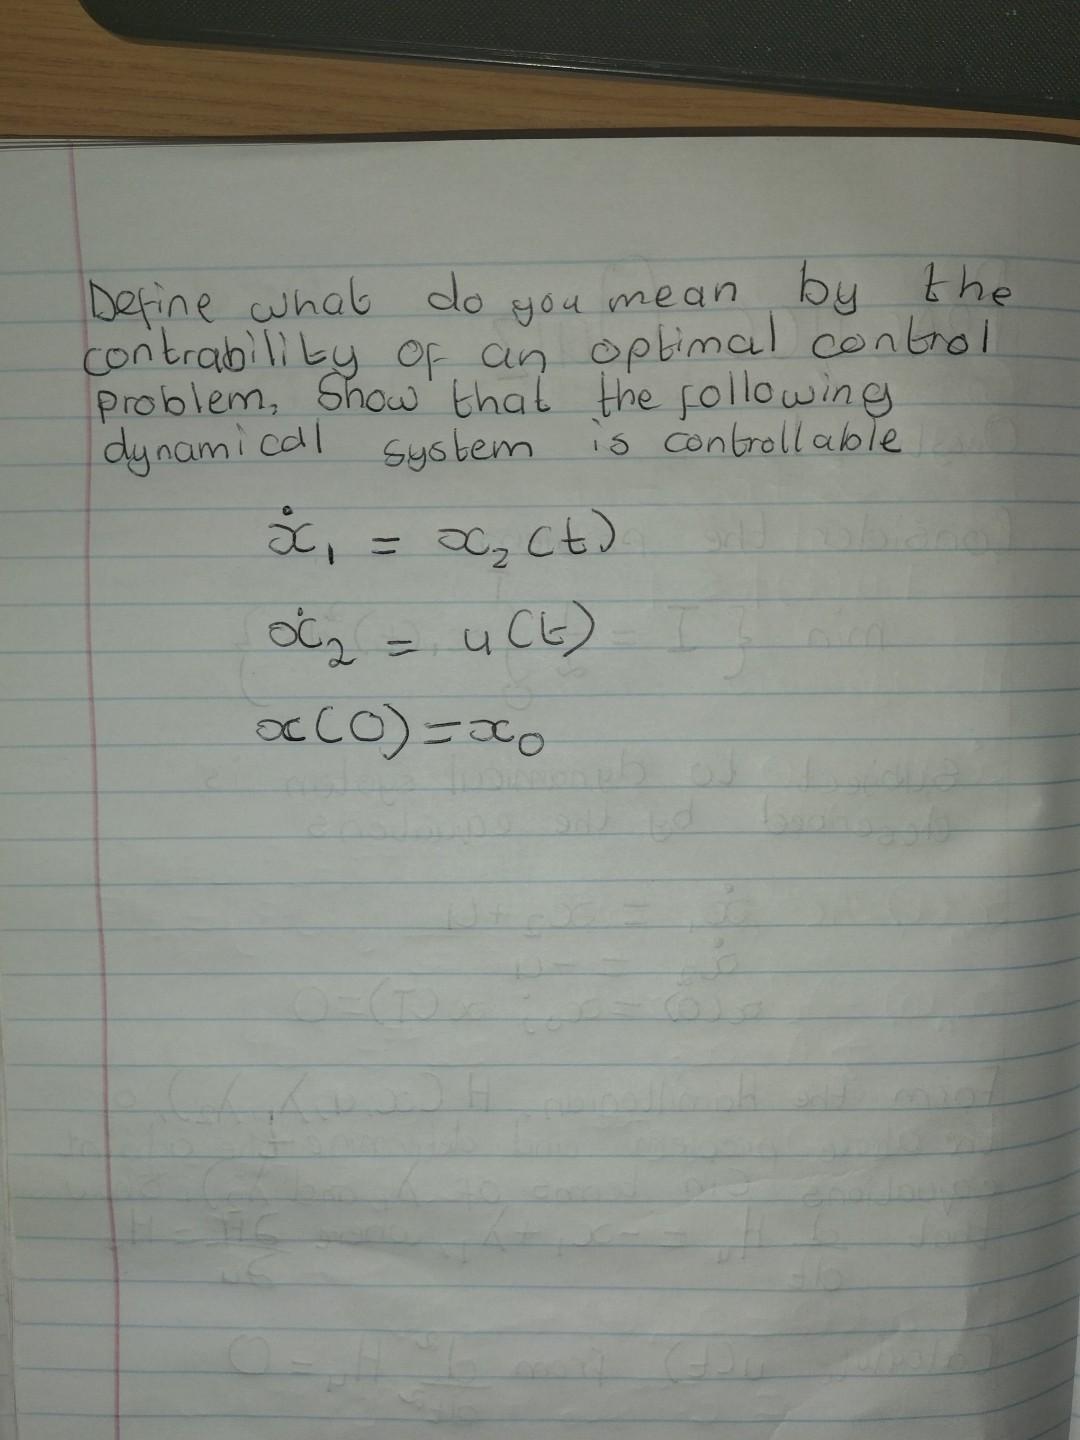 Define what do you mean by the
contrability of an optimal control
problem, Show that the following
dynamical system is controllable
ẋ₁ = x₂(t)
ẋ₂ = u(t)
x(0)=x₀